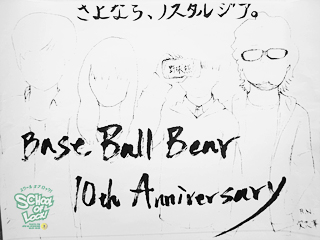 さよなら、ノスタルジア。
Base Ball Bear
10th Anniversary
SCHOOL
OF
LOCK!